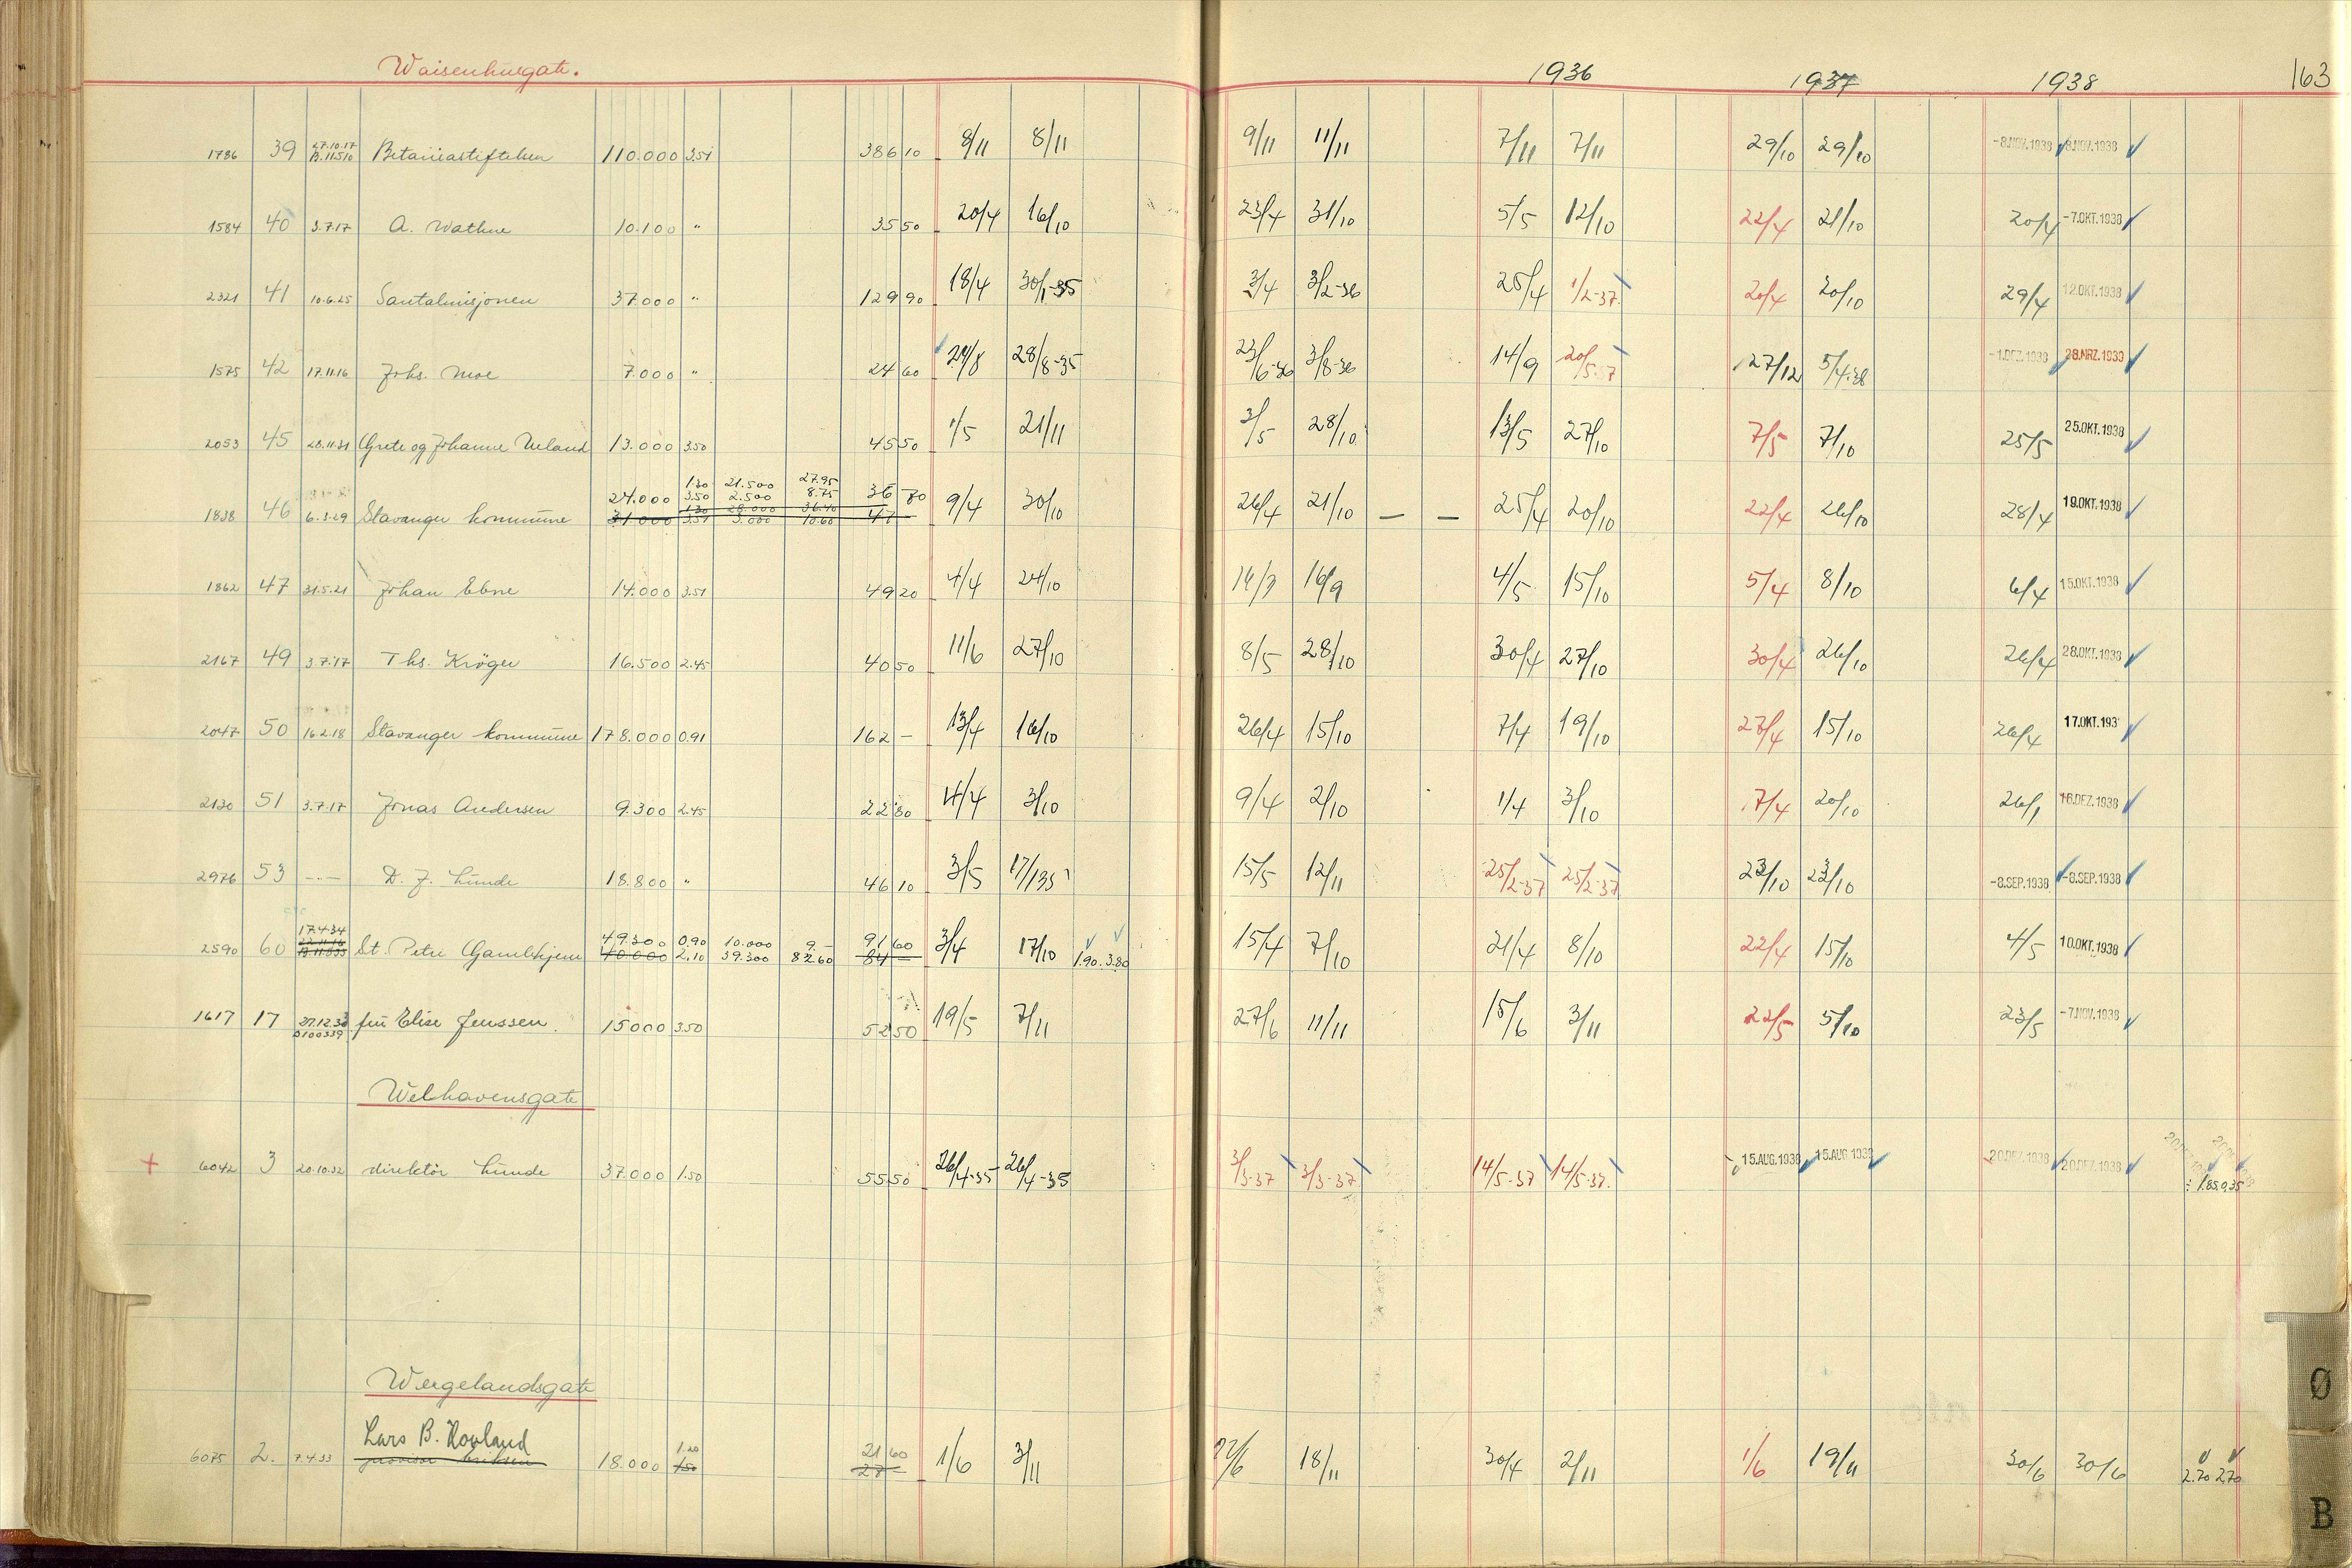 Waisenhusgate.
1936 1937 1938 163
1786 39 27.10.17 B.11510 Betaniastiftelsen 110.000 3.51 386 10 8/11 8/11 9/11 11/11 7/11 7/11 29/10 29/10 -8.NOV.1938 -8.NOV.1938
1584 40 3.7.17 A. Wathne 10.100 " 35 50 20/4 16/10 23/4 31/10 5/5 12/10 22/4 21/10 20/4 -7.OKT.1938
2321 41 10.6.25 Santalmisjonen 37.000 " 129 90 18/4 30/1-35 3/4 3/2-36 25/4 1/2-37. 20/4 20/10 29/4 12.OKT.1938
1575 42 17.11.16 Johs. Moe 7.000 " 24 60 24/8 28/8-35 23/6-36 3/8-36 14/9 20/5-37 27/12 5/4-38 -1.DEZ.1938 28.MRZ.1939
2053 45 28.11.31 Grete og Johanne Ueland 13.000 3.50 45 50 1/5 21/11 3/5 28/10 13/5 27/10 7/5 7/10 25/5 25.OKT.1938
1.30 21.500 27.95
24.000 3.50 2.500 8.75 36 70
1838 46 6.3.29 Stavanger kommune 31.000 1.30 28.000 36.40 3.51 3.000 10.60 47 — 9/4 30/10 26/4 21/10 — — 25/4 20/10 22/4 26/10 28/4 19.OKT.1938
1862 47 31.5.21 Johan Ebne 14.000 3.51 49 20 4/4 24/10 16/9 16/9 4/5 15/10 5/4 8/10 6/4 15.OKT.1938
2167 49 3.7.17 Ths. Kröger 16.500 2.45 40 50 11/6 27/10 8/5 28/10 30/4 27/10 30/4 26/10 26/4 28.OKT.1938
2047 50 16.2.18 Stavanger kommune 178.000 0.91 162 — 13/4 16/10 26/4 15/10 7/4 19/10 27/4 15/10 26/4 17.OKT.193
2130 51 3.7.17 Jonas Andersen 9.300 2.45 22 80 4/4 3/10 9/4 2/10 1/4 3/10 7/4 20/10 26/1 16.DEZ.1938
2976 53 —.— D. J. Lunde 18.800 " 46 10 3/5 17/1 35 15/5 12/11 25/2-37 25/2-37 23/10 23/10 -8.SEP.1938 -8.SEP.1938
17.4.34 49.300 0.90 10.000 9.— 91 60
2590 60 St. Petri Gamlehjem 40.000 2.10 39.300 82.60 84 — 3/4 17/10 1.90 3.80 15/4 7/10 21/4 8/10 22/4 15/10 4/5 10.OKT.1938
1617 17 27.12.33 D100339 fru Elise Jenssen. 15000 3.50 52 50 19/5 7/11 27/6 11/11 15/6 3/11 22/5 5/10 23/5 -7.NOV.1938
Welhavensgate
+ 6042 3 20.10.32 direktör Lunde 37.000 1.50 55 50 26/4-35 26/4-35 3/3-37 3/3-37 14/5-37 14/5-37. 15.AUG.1938 15.AUG.1938 20.DEZ.1938 20.DEZ.1938 1.85 0.35
Wergelandsgate
Lars B. Hovland 1.20 21 60
6075 2. 7.4.33 provisor Eriksen 18.000 1.50 27 — 1/6 3/11 22/6 18/11 30/4 2/11 1/6 19/11 30/6 30/6 2.70 2.70
Ø
B